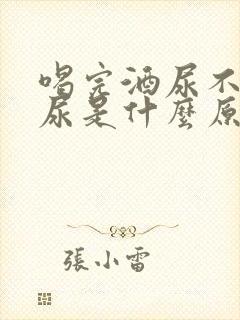 喝完酒尿不
尿是什麼原
張小雷